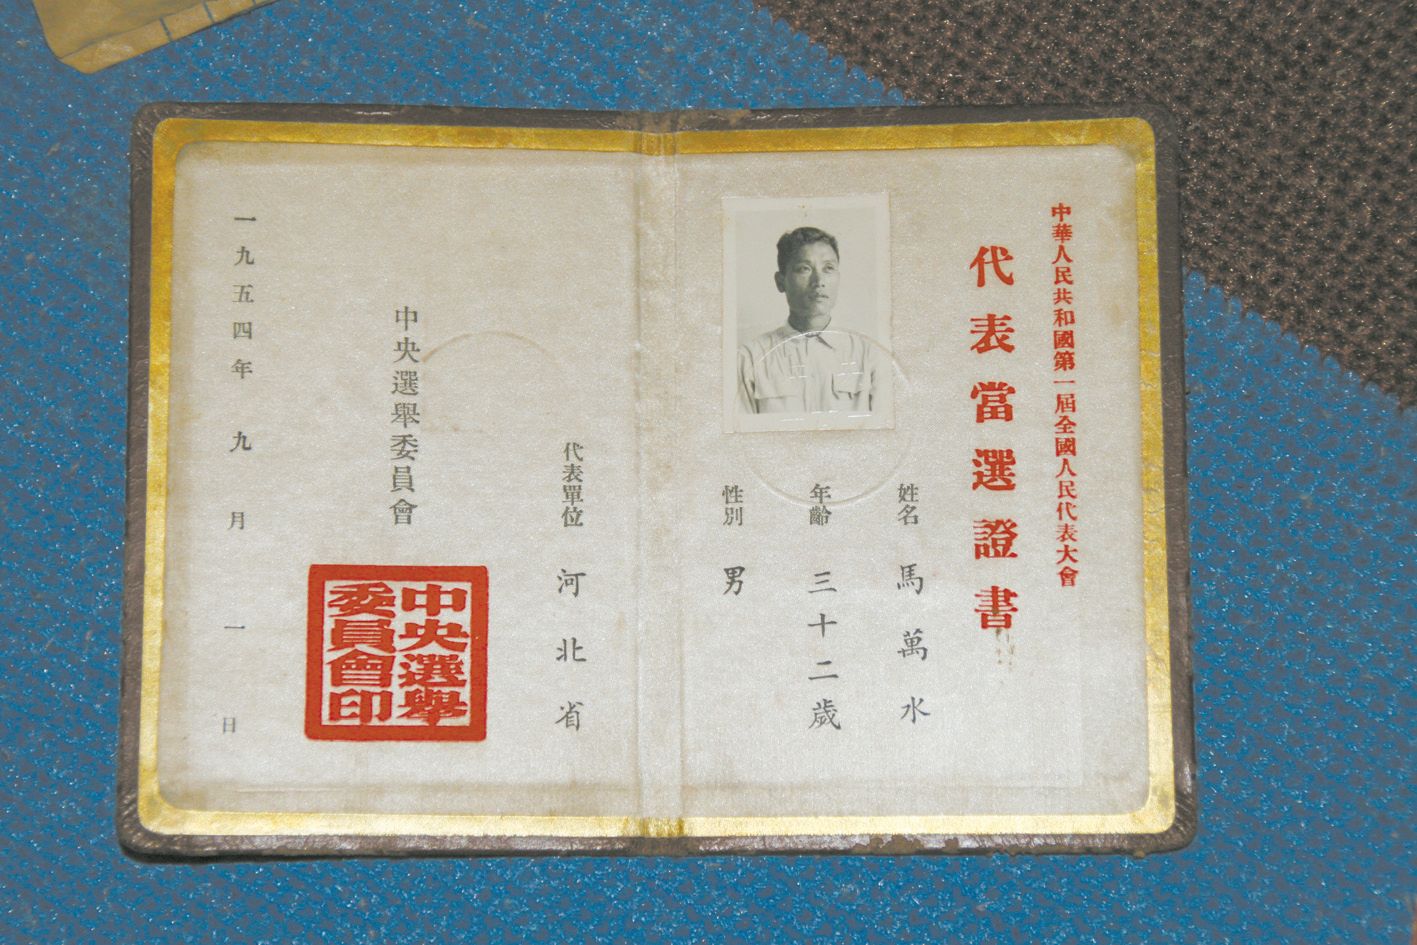 中華人民共和國第一屆全國人民代表大會
代表當選證書
姓名 馬萬水
年齡 三十二歲
性別 男
代表單位 河北省
中央選舉委員會
中央選舉
委員會印
一九五四年九月一日